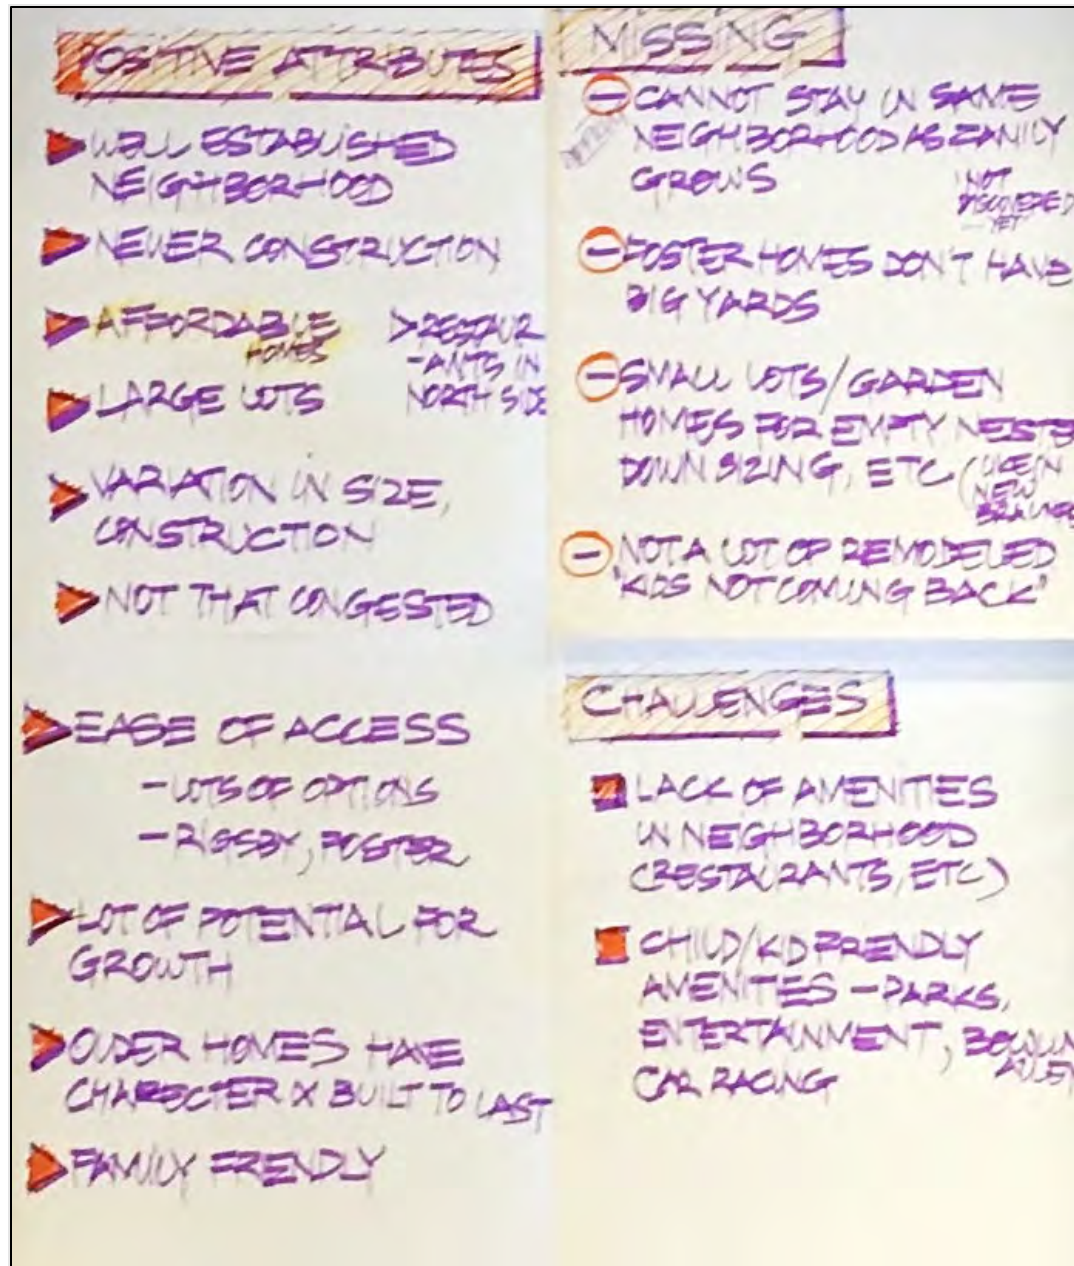 POSITIVE ATTRIBUTES
WELL ESTABLISHED
NEIGHBORHOOD
NEWER CONSTRUCTION
AFFORDABLE
HOMES
> RESTAUR
-ANTS IN
NORTH SIDE
LARGE LOTS
VARIATION IN SIZE,
CONSTRUCTION
NOT THAT CONGESTED
EASE OF ACCESS
- LOTS OF OPTIONS
- RIGSBY, FOSTER
LOT OF POTENTIAL FOR
GROWTH
OLDER HOMES HAVE
CHARECTER & BUILT TO LAST
FAMILY FRENDLY
MISSING
CANNOT STAY IN SAME
NEIGHBORHOOD AS FAMILY
GROWS
NOT
DISCOVERED
YET
FOSTER HOMES DON'T HAVE
BIG YARDS
SMALL LOTS/GARDEN
HOMES FOR EMPTY NESTE
DOWN SIZING, ETC (LIKE IN
NEW
BRAUNFE
NOT A LOT OF REMODELED
"KIDS NOT COMING BACK"
CHALLENGES
LACK OF AMENITIES
IN NEIGHBORHOOD
(RESTAURANTS, ETC)
CHILD/KID FRENDLY
AMENITIES - PARKS,
ENTERTAINMENT, BOWLIN
ALLEY
CAR RACING